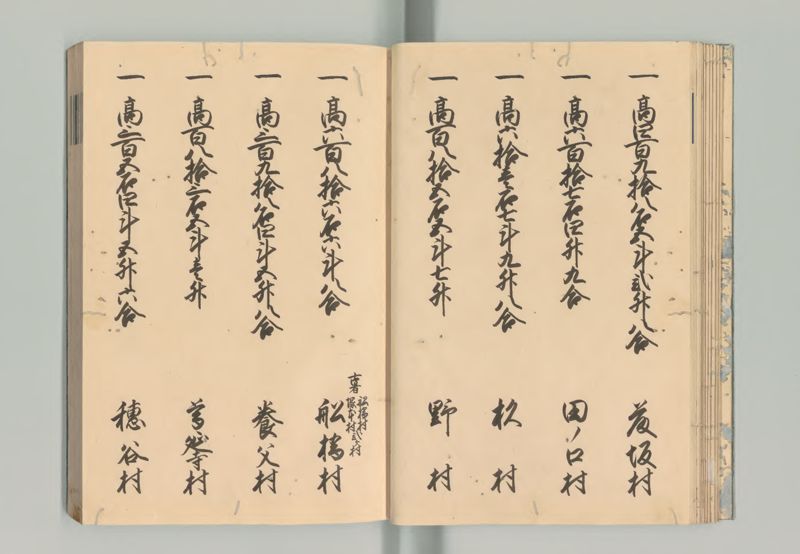 一 高四百九拾八石五斗弐升八合 藤坂村
一 高六百拾七石四升九合 田ノ口村
一 高六拾壱石七斗九升八合 杦村
一 高百八拾五石五斗七升 野村
一 高六百八拾六石六斗八合 舩橋村
一 高三百九拾八石四斗五升八合 養父村
一 高百八拾三石五斗壱升 尊延寺村
一 高三百五石四斗五升六合 穂谷村